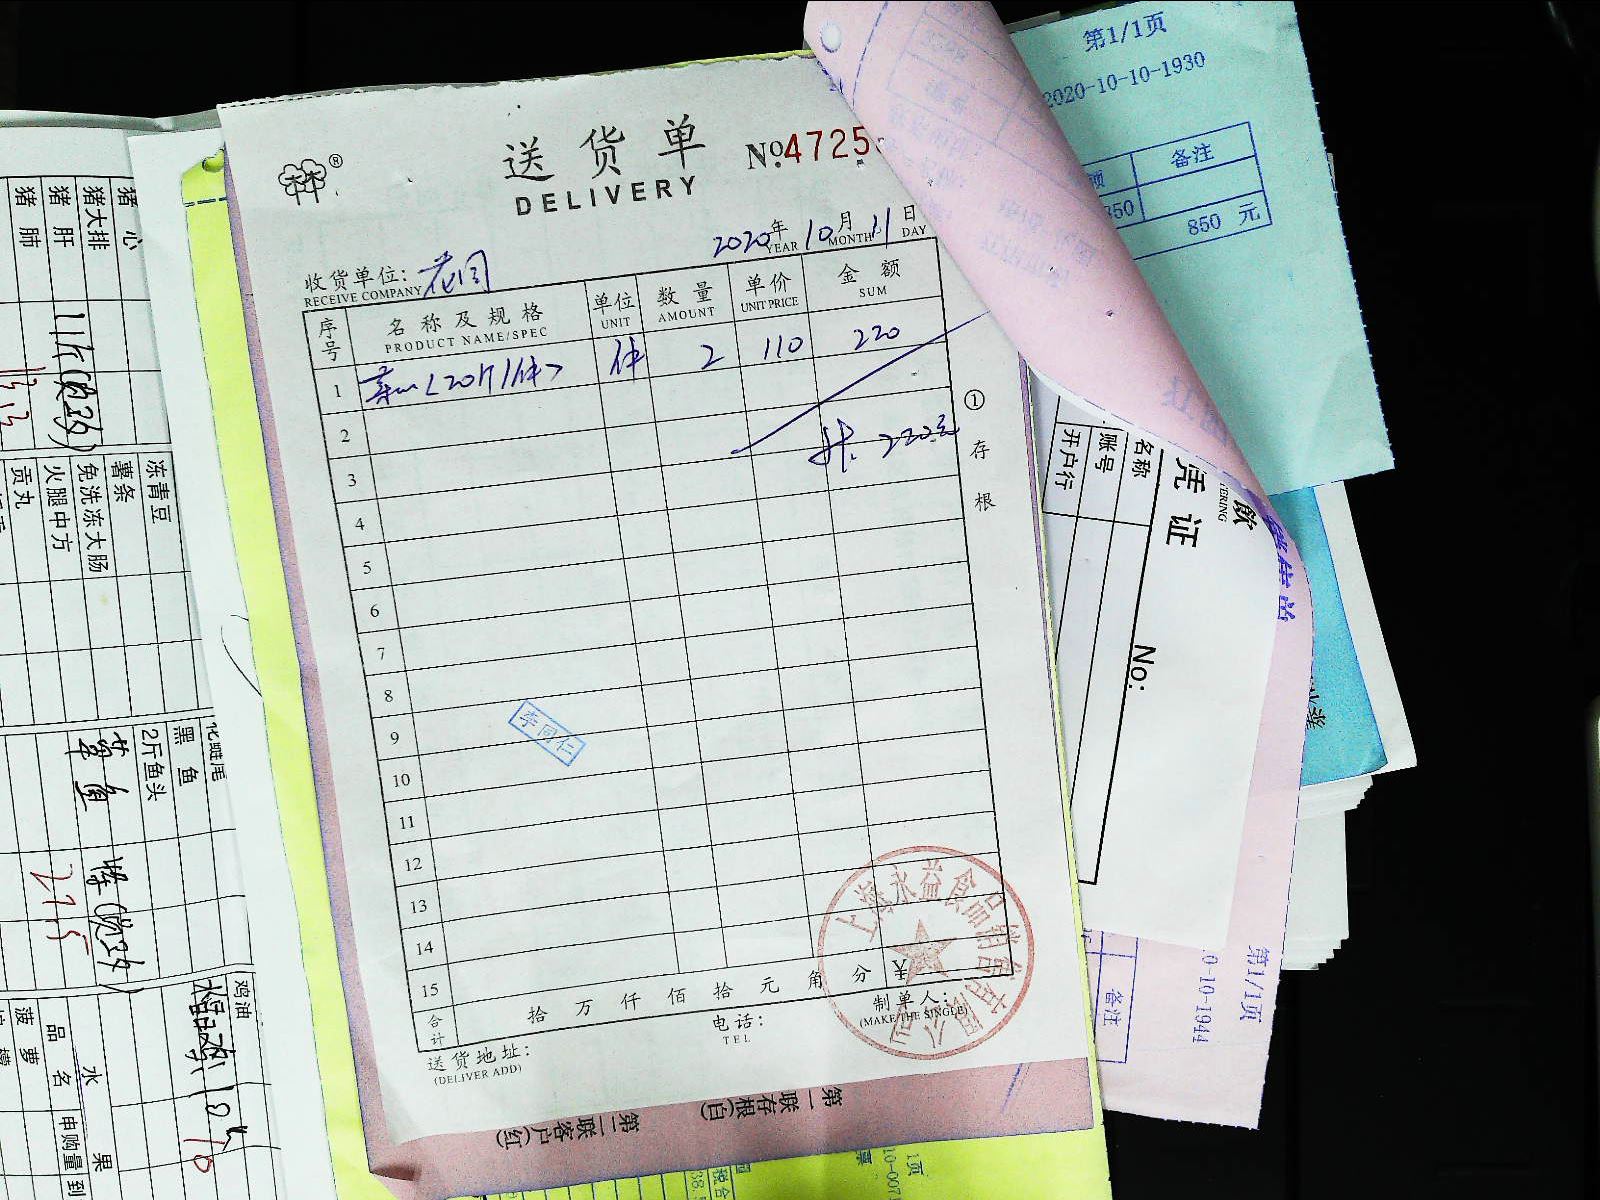 送货单
DELIVERY
®
№4725
2020年 10月 11日
YEAR MONTH DAY
收货单位:
RECEIVE COMPANY
序号 名称及规格 单位 数量 单价 金额
PRODUCT NAME/SPEC UNIT AMOUNT UNIT PRICE SUM
1 (20斤/件) 件 2 110 220
2
共: 220元
3
4
5
6
7
8
9
10
11
12
13
14
15
合计 拾 万 仟 佰 拾 元 角 分
制单人:
(MAKE THE SINGLE)
电话:
TEL
送货地址:
(DELIVER ADD)
① 存根
李同仁
上海永益食品销售有限公司
第一联存根(白)
第二联客户(红)
第1/1页
2020-10-10-1930
额 备注
850
850 元
飲
TERING
凭证
名称
账号
开户行
No:
第1/1页
0-10-1944
备注
1页
10-007
猪心
猪大排
猪肝
猪肺
冻青豆
薯条
免洗冻大肠
火腿中方
贡丸
黑鱼
2斤鱼头
草鱼
鸡油
水果
品名
申购量
菠萝